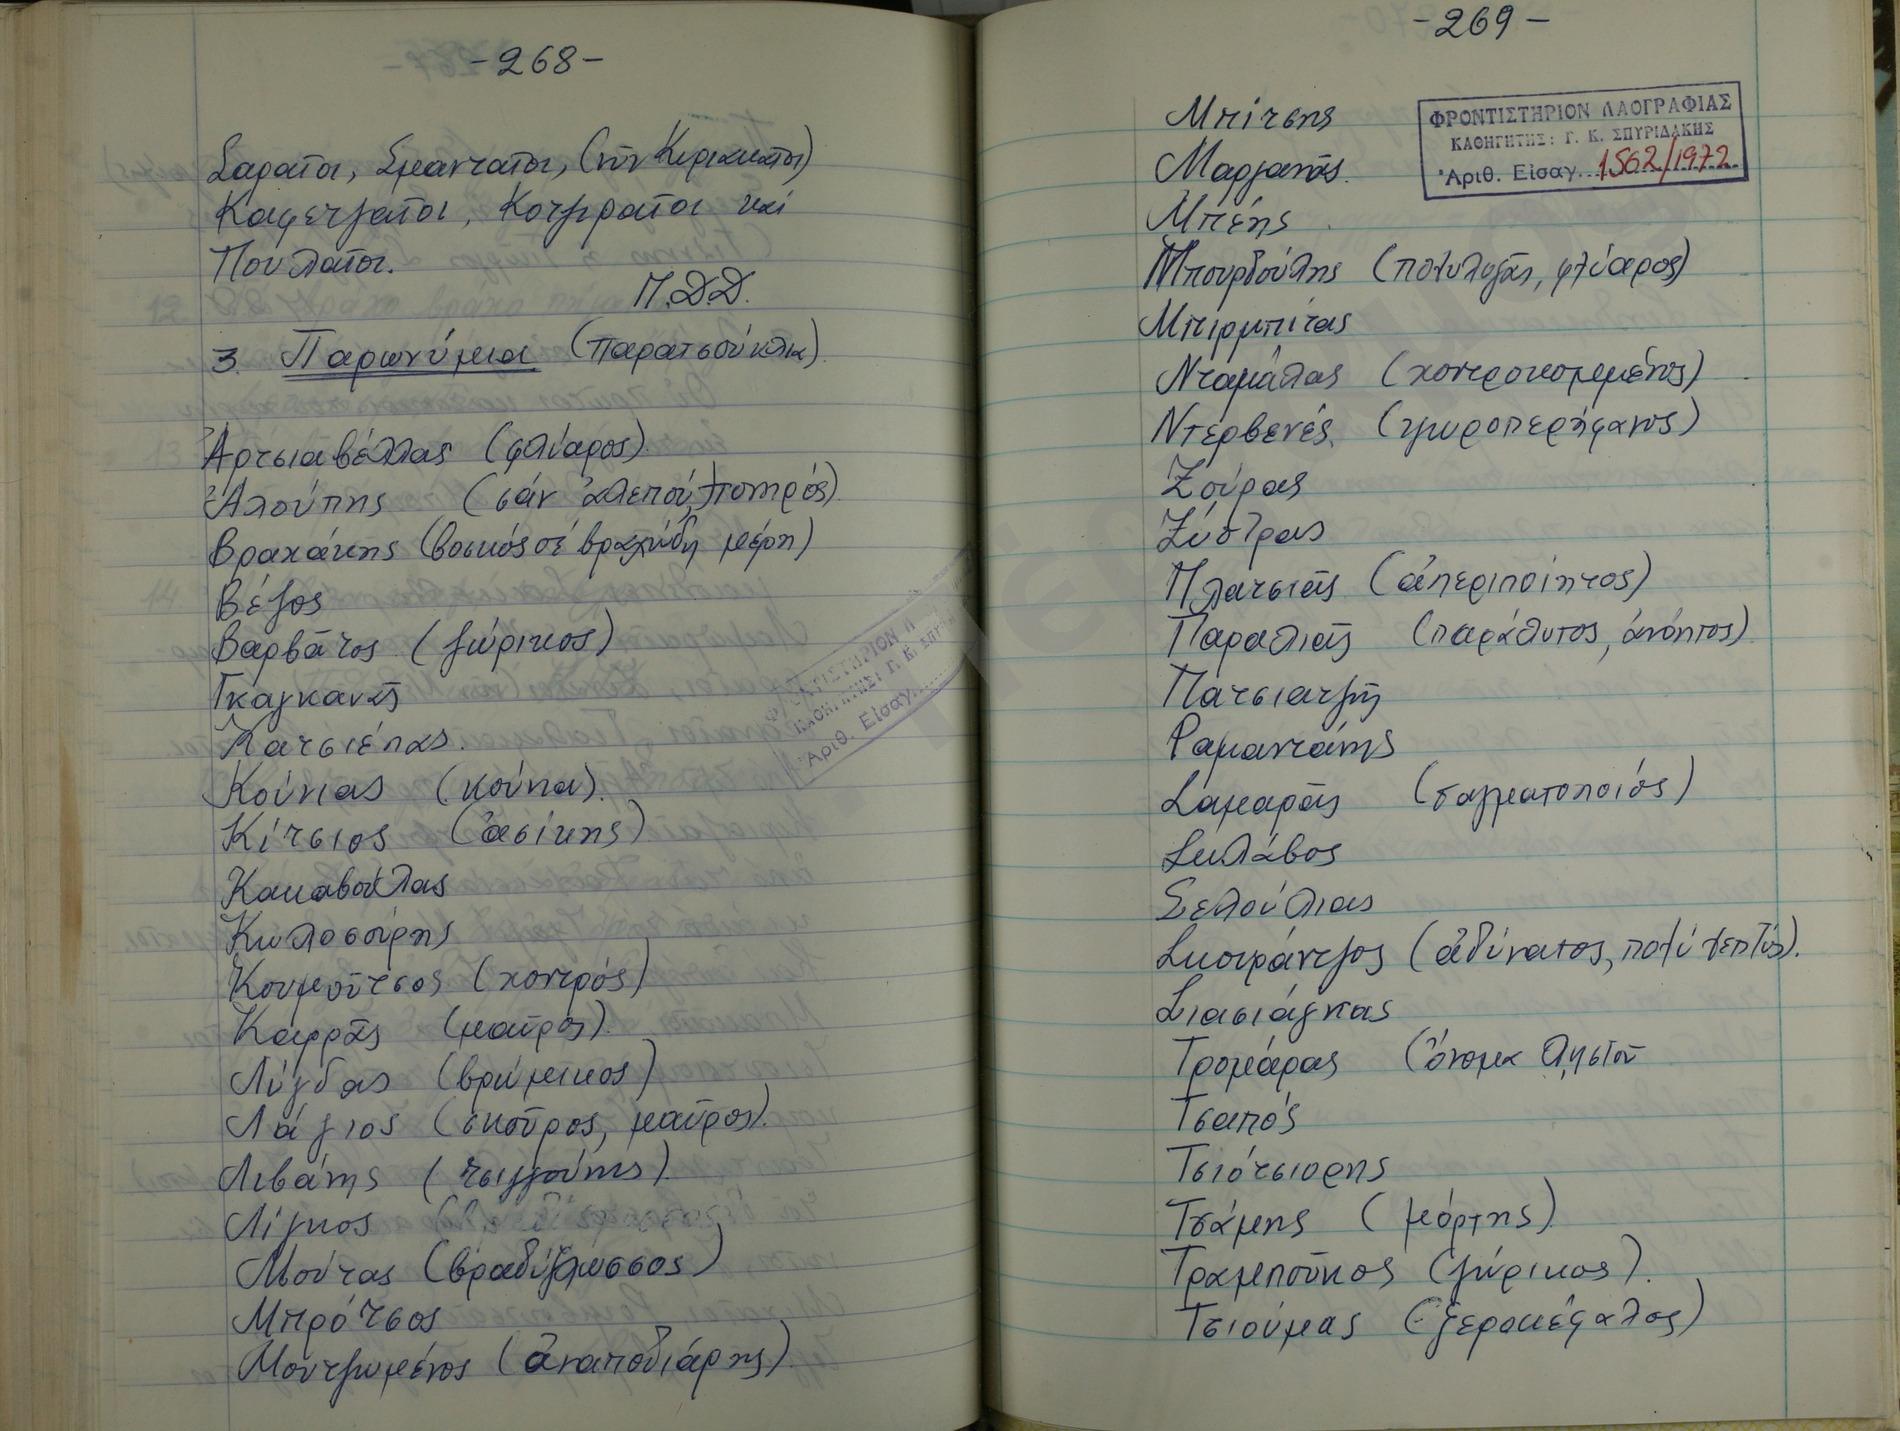 -268-
Σαραῖοι, Σμανταῖοι, (νῦν Κυριακαῖοι)
Καφετζαῖοι, Κουμραῖοι καί
Πουλαῖοι.
Π.Δ.Δ.
3. Παρωνύμια (παρατσούκλια).
Ἀρτσιαβέλλας (φλύαρος).
Ἀλούπης (σάν ἀλεπού, πονηρός)
Βραχάκης (βοσκός σέ βραχώδη μέρη)
Βέζος
Βαρβᾶτος (ζώρικος)
Γκαγκανᾶς
Κατσιέπας.
Κούπας (κούπα).
Κίτσιος (ἀσίκης)
Κακαβούλας
Κωλοσούρης
Κουμοῦτσος (χοντρός)
Καρρᾶς (μαῦρος).
Λύγδας (βρώμικος)
Λάγιος (σκοῦρος, μαῦρος).
Λιβάνης (τσιγγούνης).
Λίγκος
Μούτας (βραδύγλωσσος)
Μπρότσος
Μουτζωμένος (ἀναποδιάρης).
-269-
ΦΡΟΝΤΙΣΤΗΡΙΟΝ ΛΑΟΓΡΑΦΙΑΣ
ΚΑΘΗΓΗΤΗΣ: Γ. Κ. ΣΠΥΡΙΔΑΚΗΣ
Ἀριθ. Εἰσαγ. 1562/1972
Μπίτσης
Μαργανᾶς.
Μπέης
Μπουρδούλης (πολυλογᾶς, φλύαρος)
Μπιρμπίτας
Νταμάλας (χοντροκομμένος)
Ντερβενές (ψυροπερήφανος)
Ζούρας
Ζύστρας
Πλατσιᾶς (ἀπεριποίητος)
Παραλιᾶς (παράλυτος, ἀνόητος)
Πατσιατζῆς
Ραμαντάνης
Σαμαρᾶς (σαγματοποιός)
Σκλάβος
Σελούλιας
Σκουράντζος (ἀδύνατος, πολύ λεπτός).
Σιασιάγκας
Τρομάρας (ὄνομα ληστοῦ
Τσαπός
Τσιότσιορης
Τσάμης (μόρτης)
Τραμπούκος (ζώρικος).
Τσιούμας (ξεροκέφαλος)